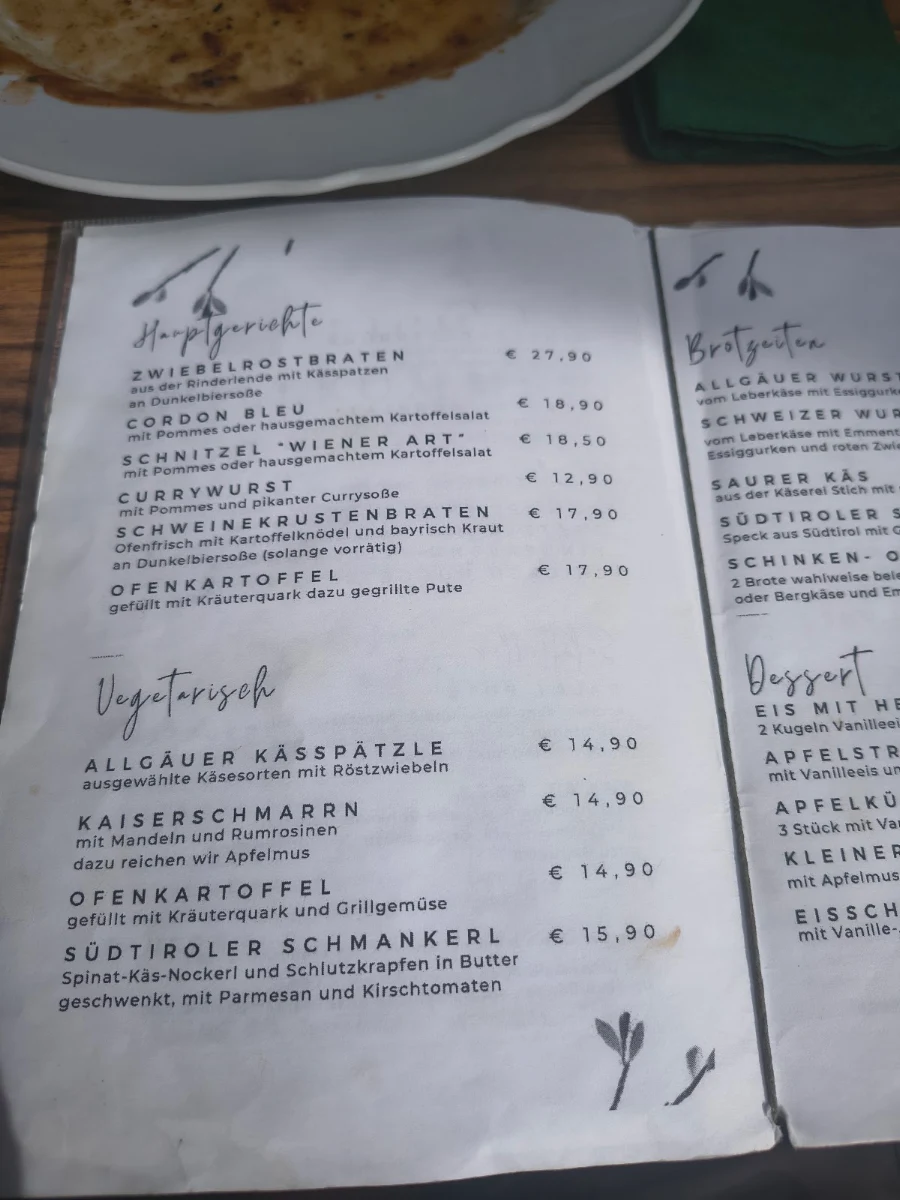 Hauptgerichte
ZWIEBELROSTBRATEN € 27,90
aus der Rinderlende mit Kässpatzen
an Dunkelbiersoße
CORDON BLEU € 18,90
mit Pommes oder hausgemachtem Kartoffelsalat
SCHNITZEL "WIENER ART" € 18,50
mit Pommes oder hausgemachtem Kartoffelsalat
CURRYWURST € 12,90
mit Pommes und pikanter Currysoße
SCHWEINEKRUSTENBRATEN € 17,90
Ofenfrisch mit Kartoffelknödel und bayrisch Kraut
an Dunkelbiersoße (solange vorrätig)
OFENKARTOFFEL € 17,90
gefüllt mit Kräuterquark dazu gegrillte Pute
Vegetarisch
ALLGÄUER KÄSSPÄTZLE € 14,90
ausgewählte Käsesorten mit Röstzwiebeln
KAISERSCHMARRN € 14,90
mit Mandeln und Rumrosinen
dazu reichen wir Apfelmus
OFENKARTOFFEL € 14,90
gefüllt mit Kräuterquark und Grillgemüse
SÜDTIROLER SCHMANKERL € 15,90
Spinat-Käs-Nockerl und Schlutzkrapfen in Butter
geschwenkt, mit Parmesan und Kirschtomaten
Brotzeiten
ALLGÄUER WURST
vom Leberkäse mit Essiggurk
SCHWEIZER WUR
vom Leberkäse mit Emment
Essiggurken und roten Zwi
SAURER KÄS
aus der Käserei Stich mit
SÜDTIROLER S
Speck aus Südtirol mit G
SCHINKEN- O
2 Brote wahlweise bele
oder Bergkäse und Em
Dessert
EIS MIT HE
2 Kugeln Vanilleei
APFELSTR
mit Vanilleeis un
APFELKÜ
3 Stück mit Va
KLEINER
mit Apfelmus
EISSCH
mit Vanille-